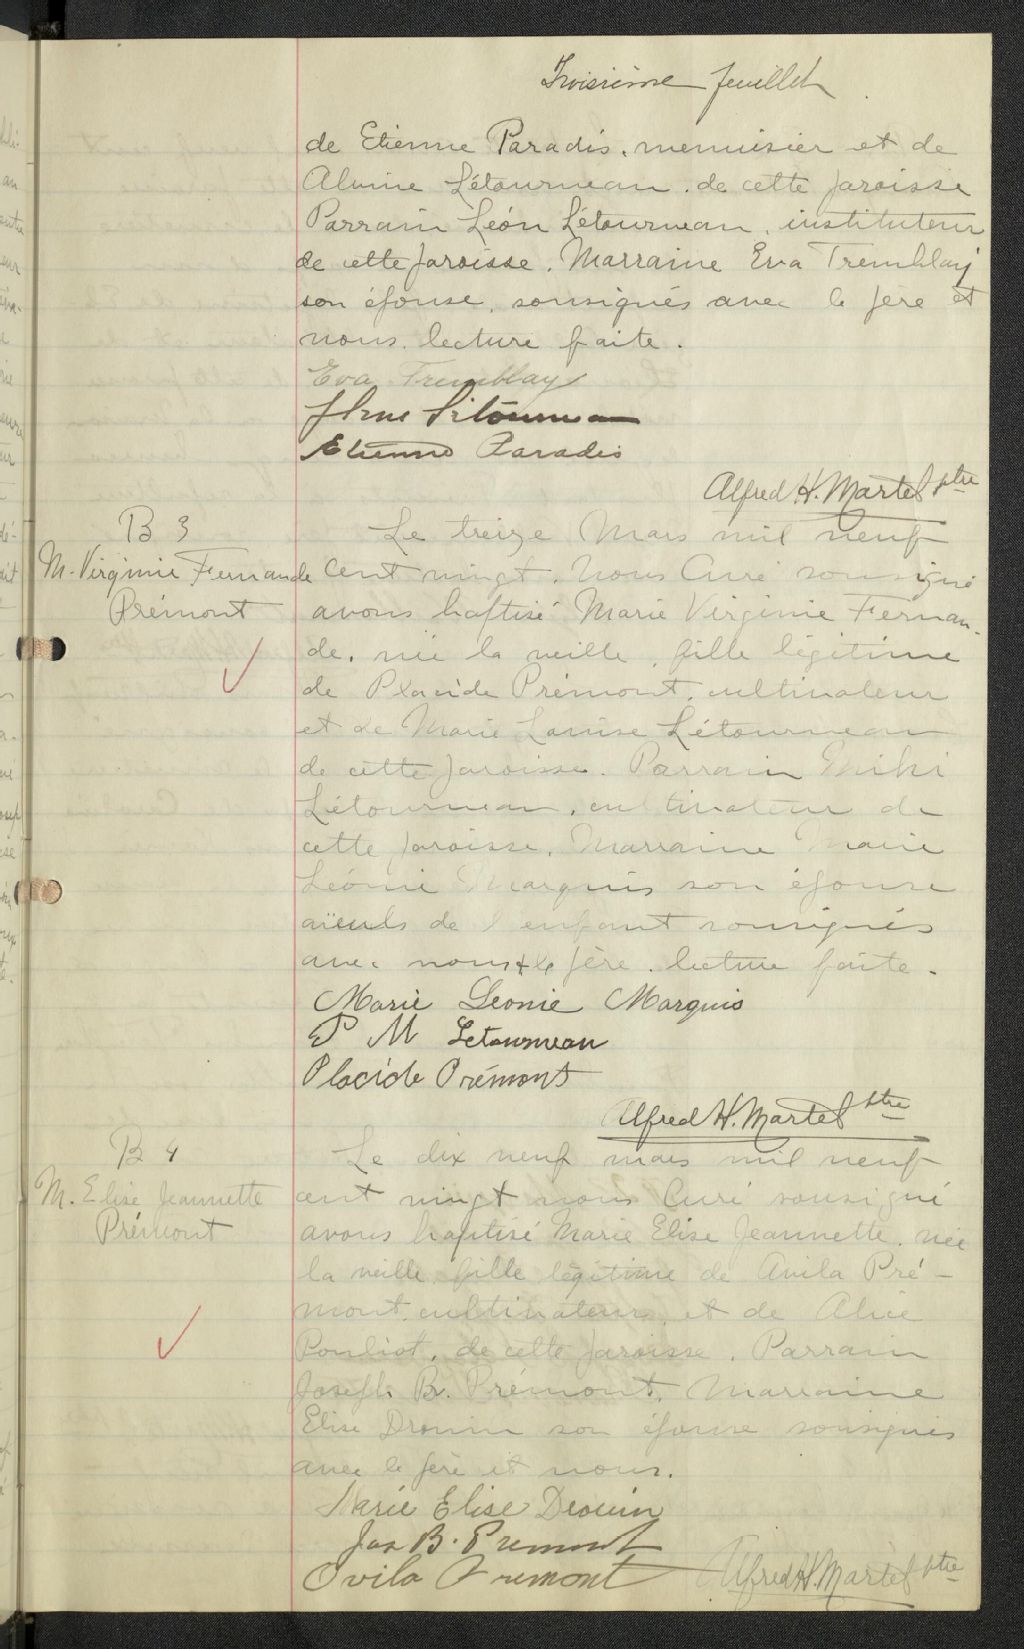 Troisième feuillet
de Etienne Paradis, menuisier et de
Alvine Létourneau, de cette paroisse
Parrain Léon Létourneau, instituteur
de cette paroisse. Marraine Eva Tremblay
son épouse, sousignés avec le père et
nous. lecture faite.
Eva Tremblay
Létourneau
Etienne Paradis
Alfred H. Martel ptre
B 3
M. Virginie Fernande
Prémont
Le treize Mars mil neuf
cent vingt, Nous Curé sousigné
avons baptisé Marie Virginie Fernan-
de, née la veille, fille légitime
de Placide Prémont, cultivateur
et de Marie Louise Létourneau
de cette paroisse. Parrain
Létourneau, cultivateur de
cette paroisse. Marraine Marie
Léonie Marquis son épouse
aïeuls de l'enfant sousignés
avec nous & le père. lecture faite.
Marie Leonie Marquis
P M Letourneau
Placide Prémont
Alfred H. Martel ptre
B 4
M. Elise Jeannette
Prémont
Le dix neuf mars mil neuf
cent vingt nous Curé sousigné
avons baptisé Marie Elise Jeannette, née
la veille, fille légitime de Avila Pré-
mont, cultivateur, et de Alice
Pouliot, de cette paroisse. Parrain
Joseph B. Prémont, Marraine
Elise Drouin son épouse sousignés
avec le père et nous.
Marie Elise Drouin
Jos B. Premont
Ovila Premont
Alfred H. Martel ptre